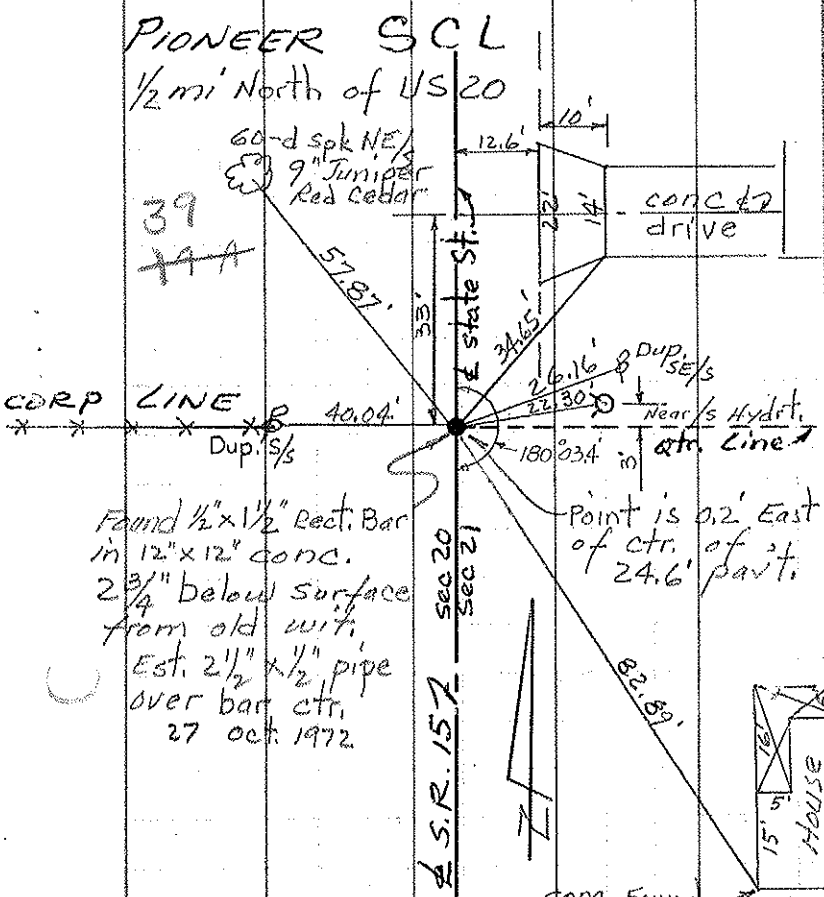 PIONEER SCL
1/2 mi North of US 20
60-d spk NE/s
9" Juniper
Red Cedar
39
19 A
12.6'
10'
22'
14'
conc ℄
drive
57.87'
33'
℄ State St.
34.65'
26.16'
22.30'
Dup. SE/s
CORP LINE
40.04'
Dup. S/s
Near/s Hydrt.
Qtr. Line
180°03.4'
3'
Found 1/2" x 1 1/2" Rect. Bar
in 12" x 12" conc.
2 3/4" below surface
from old wit.
Est. 2 1/2" x 1/2" pipe
over bar ctr.
27 Oct. 1972
Point is 0.2' East
of ctr. of
24.6' pav't.
Sec 20
Sec 21
82.89'
℄ S.R. 157
16'
5'
15'
House